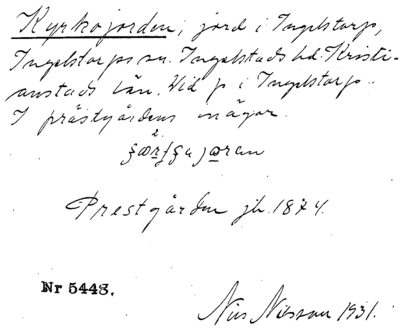 Kyrkojorden, jord i Ingelstorp,
Ingelstorps sn. Ingelstads hd. Kristi-
anstads län. Vid p i Ingelstorp.
I prästgårdens mägor.
Prestgården jb. 1874.
Nr 5448.
Nils Nilsson 1931.